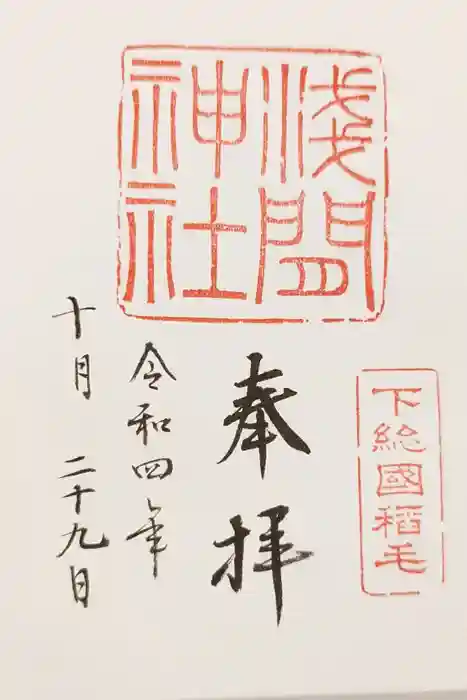 淺間
神社
下総國稲毛
奉拝
令和四年
十月二十九日